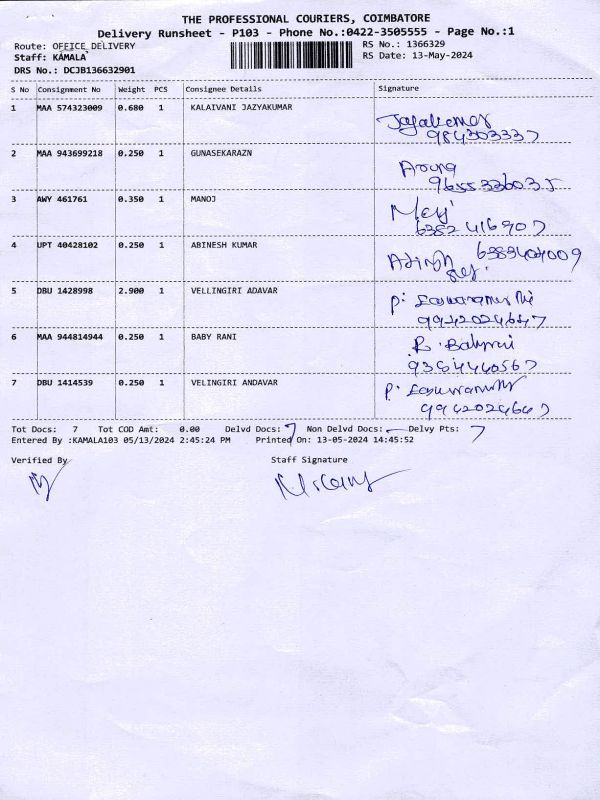 THE PROFESSIONAL COURIERS, COIMBATORE
Delivery Runsheet - P103 - Phone No.:0422-3505555 - Page No.:1
Route: OFFICE DELIVERY RS No.: 1366329
Staff: KAMALA RS Date: 13-May-2024
DRS No.: DCJB136632901
S No Consignment No Weight PCS Consignee Details Signature
1 MAA 574323009 0.680 1 KALAIVANI JAZYAKUMAR
2 MAA 943699218 0.250 1 GUNASEKARAZN
Aruna
96555336035
3 AWY 461761 0.350 1 MANOJ
6382416907
4 UPT 40428102 0.250 1 ABINESH KUMAR
5 DBU 1428998 2.900 1 VELLINGIRI ADAVAR
6 MAA 944814944 0.250 1 BABY RANI
7 DBU 1414539 0.250 1 VELINGIRI ANDAVAR
Tot Docs: 7 Tot COD Amt: 0.00 Delvd Docs: 7 Non Delvd Docs: - Delvy Pts: 7
Entered By :KAMALA103 05/13/2024 2:45:24 PM Printed On: 13-05-2024 14:45:52
Verified By Staff Signature